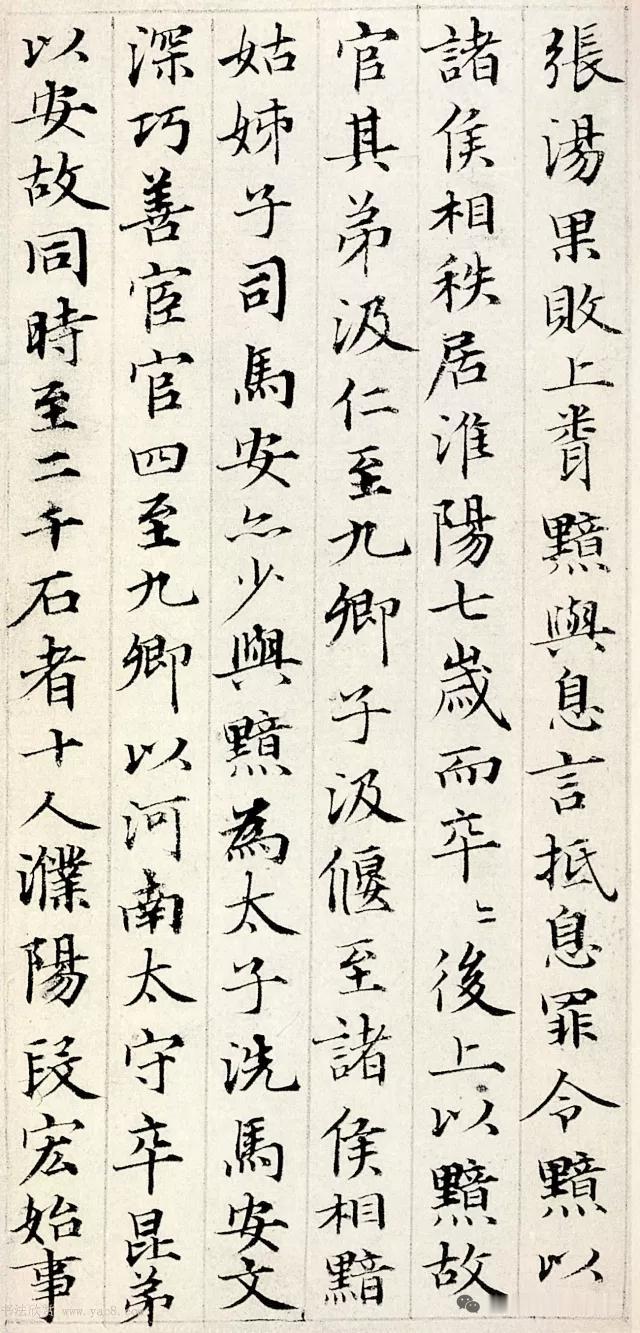 張湯果敗上聞黯與息言抵息罪令黯以
諸侯相秩居淮陽七歲而卒〻後上以黯故
官其弟汲仁至九卿子汲偃至諸侯相黯
姑姊子司馬安亦少與黯為太子洗馬安文
深巧善宦官四至九卿以河南太守卒昆弟
以安故同時至二千石者十人濮陽段宏始事
书法欣 www.yac8.com